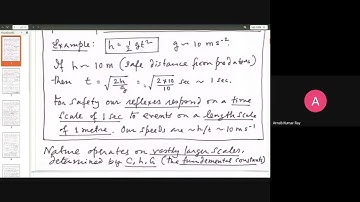 Example: h = ½ gt² g ~ 10 ms⁻².
If h ~ 10 m (safe distance from predators)
then t = √(2h/g) = √(2×10/10) sec ~ 1 sec.
For safety our reflexes respond on a time
scale of 1 sec to events on a length scale
of 1 metre. Our speeds are ~ h/t ~ 10 ms⁻¹
Nature operates on vastly larger scales,
determined by C, h, G (the fundamental constants)
A
Arnab Kumar Ray